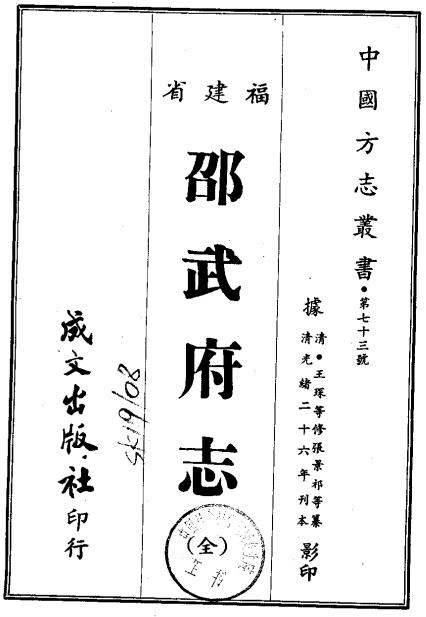 中國方志叢書•第七十三號
據 清•王琛等修張景祁等纂
清光緒二十六年刊本 影印
福建省
邵武府志
(全)
成文出版社印行